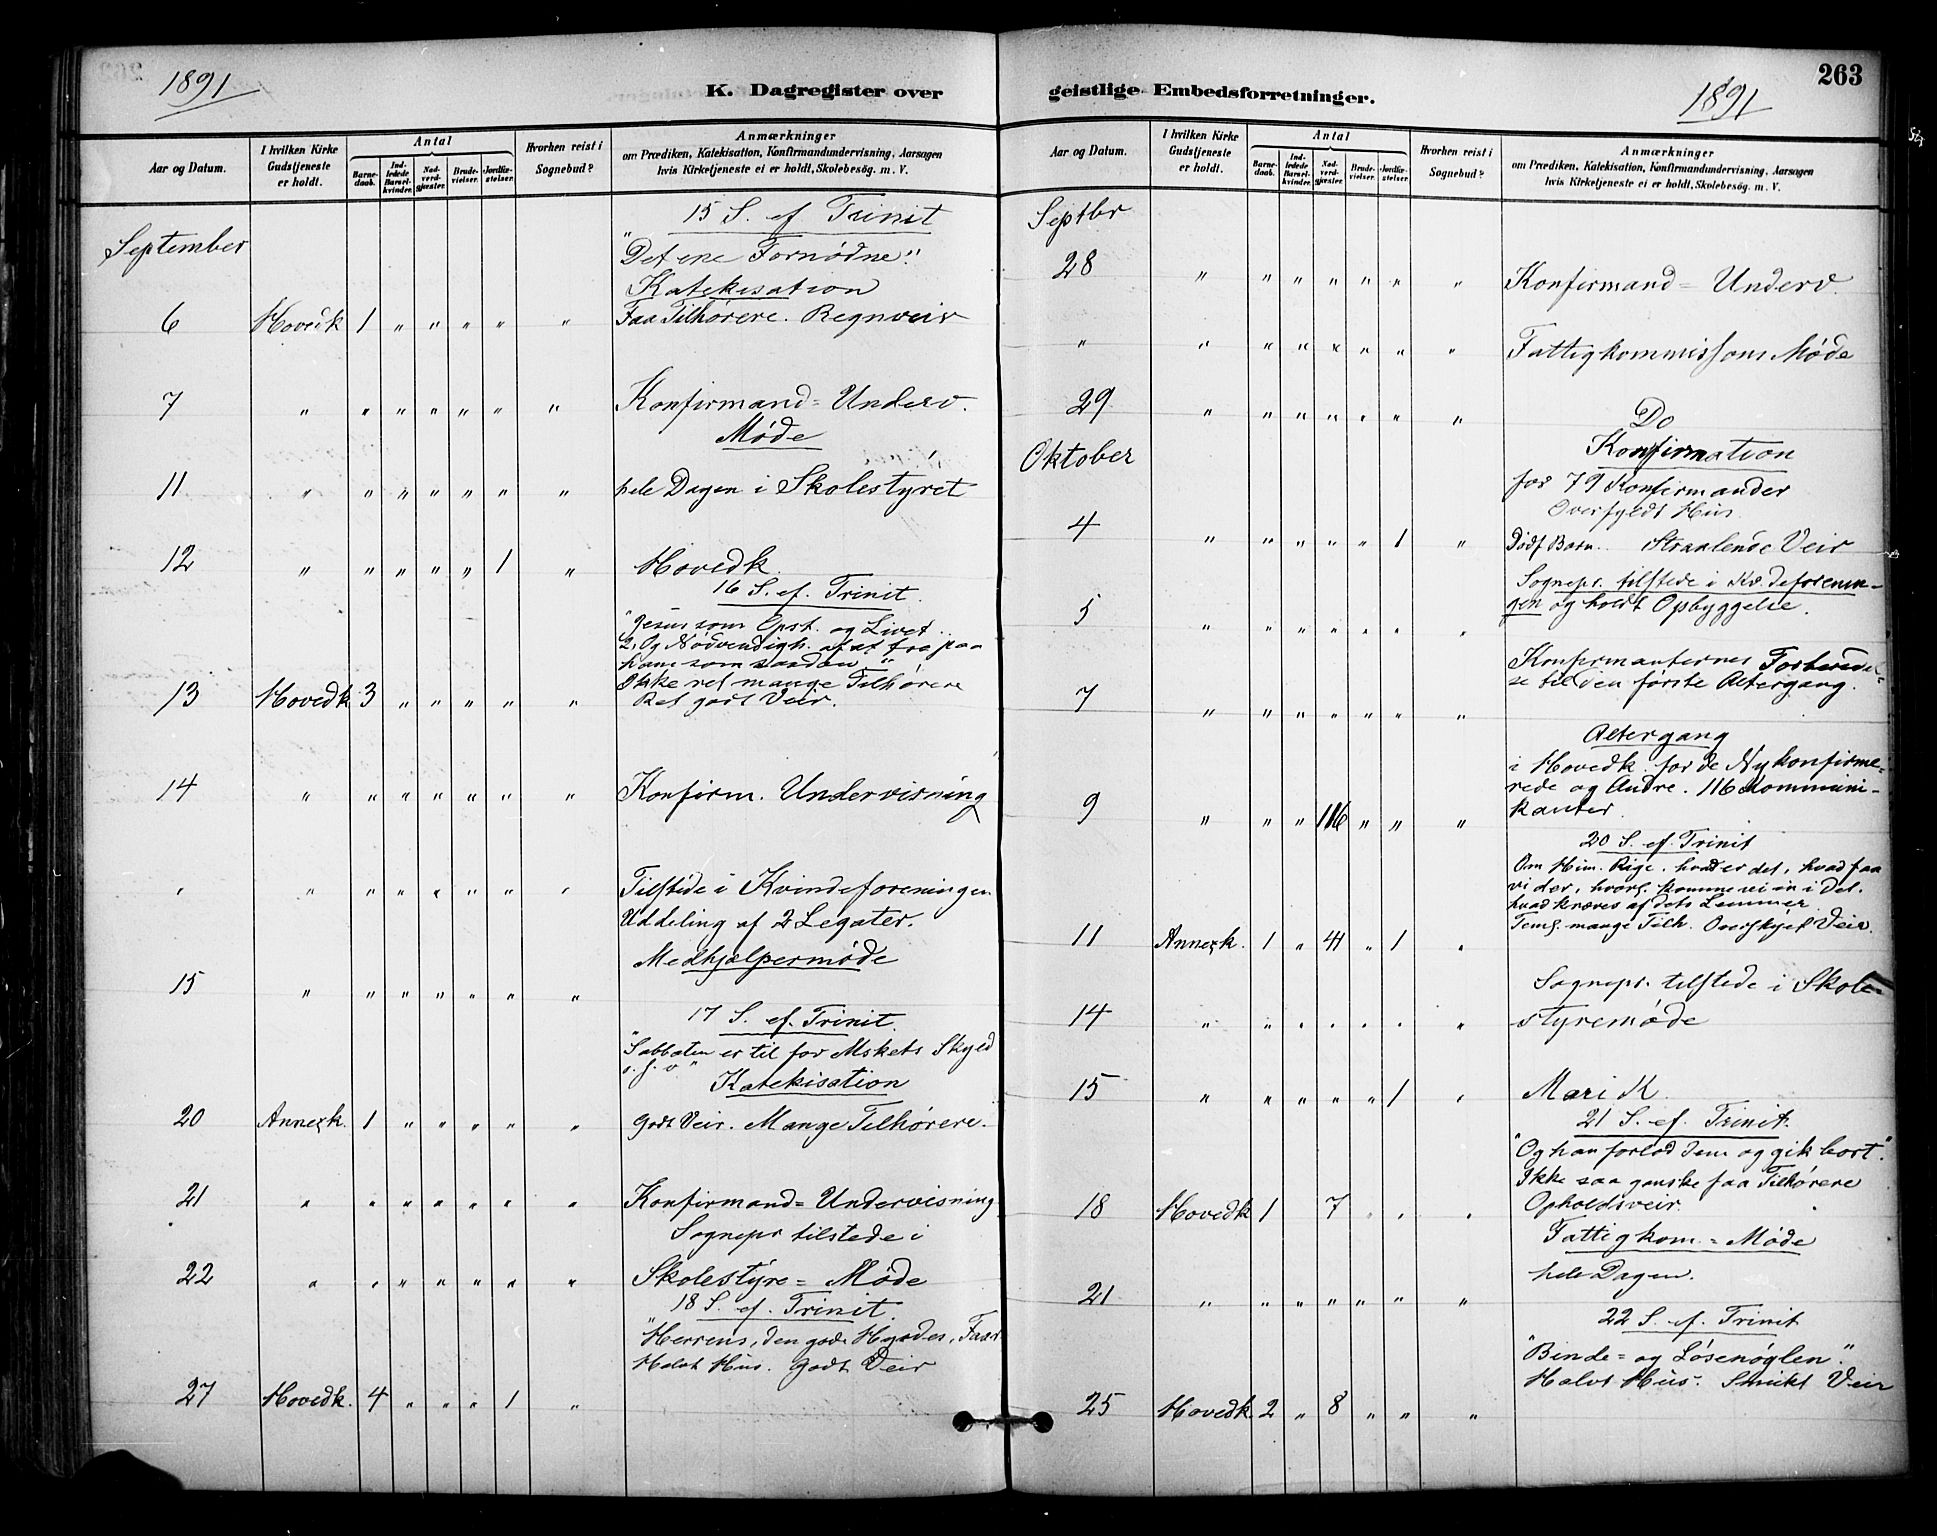 1891
K. Dagregister over
Aar og Datum.
I hvilken Kirke Gudstjeneste er holdt.
Antal
Barnedaab.
Indledede Barselkvinder.
Nadverdgjæster.
Brudevielser.
Jordfæstelser.
Hvorhen reist i Sognebud?
Anmærkninger
om Prædiken, Katekisation, Konfirmandundervisning, Aarsagen
hvis Kirketjeneste ei er holdt, Skolebesøg. m. V.
15 S. ef Trinit
September
"Det ene Fornødne".
Katekisation
6 Hovedk 1 " " " " " Faa Tilhørere. Regnveir
7 " " " " " " " Konfirmand= Underv.
Møde
11 " " " " " " " hele Dagen i Skolestyret
12 " " " " " 1 " Hovedk.
16 S. ef. Trinit.
"Jesus som Opst. og Livet
2, Og Nødvendigh. af at tro paa
ham som saadan "
Ikke ret mange Tilhørere
13 Hovedk 3 " " " " " Ret godt Veir.
14 " " " " " " " Konfirm. Undervisning
" " " " " " " " Tilstede i Kvindeforeningen
Uddeling af 2 Legater.
Medhjælpermøde
15 " " " " " " "
17 S. ef. Trinit.
"Sabbaten er til for Mskets Skyld
o. s. v"
Katekisation
20 Annexk. 1 " " " " " Godt Veir. Mange Tilhørere.
21 " " " " " " " Konfirmand= Undervisning
Sognepr tilstede i
22 " " " " " " " Skolestyre= Møde
18 S. ef. Trinit.
"Herrens, den gode Hyrdes, Faar
Halvt Hus. Godt Veir
27 Hovedk. 4 " " " 1 "
263
1891
geistlige Embedsforretninger.
Aar og Datum.
I hvilken Kirke Gudstjeneste er holdt.
Antal
Barnedaab.
Indledede Barselkvinder.
Nadverdgjæster.
Brudevielser.
Jordfæstelser.
Hvorhen reist i Sognebud?
Anmærkninger
om Prædiken, Katekisation, Konfirmandundervisning, Aarsagen
hvis Kirketjeneste ei er holdt, Skolebesøg. m. V.
Septbr
28 " " " " " " " Konfirmand= Underv.
" " " " " " " " Fattigkommissons Møde
29 " " " " " " " Do
Oktober
Konfirmation
for 79 Konfirmander
Overfyldt Hus
4 " " " " " 1 " Dødf Barn. Straalende Veir
Sognepr. tilstede i Kv.deforenin-
5 " " " " " " " gen og holdt Opbyggelse.
Konfirmanternes Forberedel-
7 " " " " " " " se til den første Altergang.
Altergang
i Hovedk. for de Nykonfirme-
rede og Andre. 116 Kommuni-
9 " " " 116 " " " kanter.
20 S. ef. Trinit
Om Him. Rige, hvad er det, hvad faa
vi der, hvorl. komme vi ind i det.
hvad kræves af dets Lemmer
Teml. mange Tilh. Overskyet Veir.
11 Annexk. 1 " 41 " 1 "
Sognepr. tilstede i Skole-
14 " " " " " " " styremøde
15 " " " " " 1 " Mari K.
21 S. ef. Trinit.
"Og han forlod dem og gik bort".
Ikke saa ganske faa Tilhørere
18 Hovedk 1 " 7 " " " Opholdsveir.
Fattigkom.= Møde
hele Dagen.
21 " " " " " " "
22 S. ef. Trinit
"Binde= og Løsenøglen."
Halvt Hus. Smukt Veir
25 Hovedk. 2 " 8 " " "